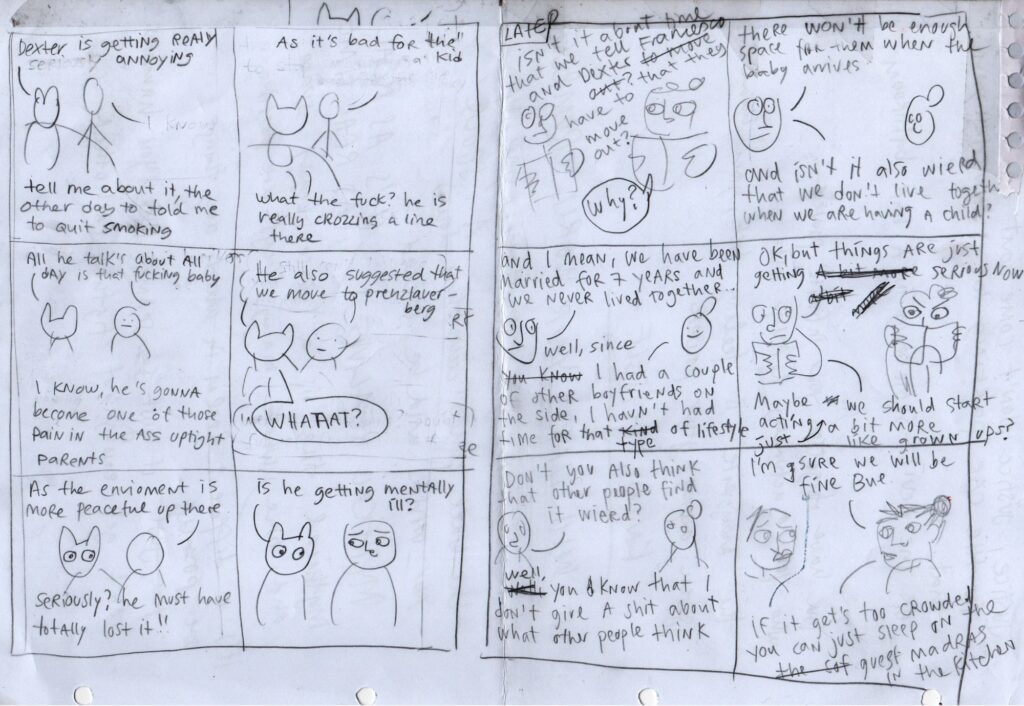 Dexter is getting REAlly
seriously annoying
I know
tell me about it, the
other day to told me
to quit smoking
As it's bad for "the"
kid
what the fuck? he is
really crozzing a line
there
All he talk's about All
day is that fucking baby
I know, he's gonna
become one of those
pain in the Ass uptight
parents
He also suggested that
we move to prenzlauer-
berg
WHATAAT?
As the enviorment is
more peaceful up there
seriously? he must have
totally lost it!!
Is he getting mentally
ill?
LATER
isn't it about time
that we tell Francesco
and Dexter to move
out? that they
have to
move
out?
Why?
there won't be enough
space for them when the
baby arrives
and isn't it also wierd
that we don't live togeth
when we are having a child?
and I mean, we have been
married for 7 years and
we never lived together...
well, since
you know I had a couple
of other boyfriends on
the side, I havn't had
time for that kind of lifestyle
type
OK, but things are just
getting a bit more serious now
abit
Maybe we should start
acting a bit more
just like grown ups?
Don't you also think
that other people find
it wierd?
well,
you know that I
don't give a shit about
what other people think
I'm sure we will be
fine Bue
if it get's too crowded
you can just sleep on the
the sof guest madras
in the kitchen